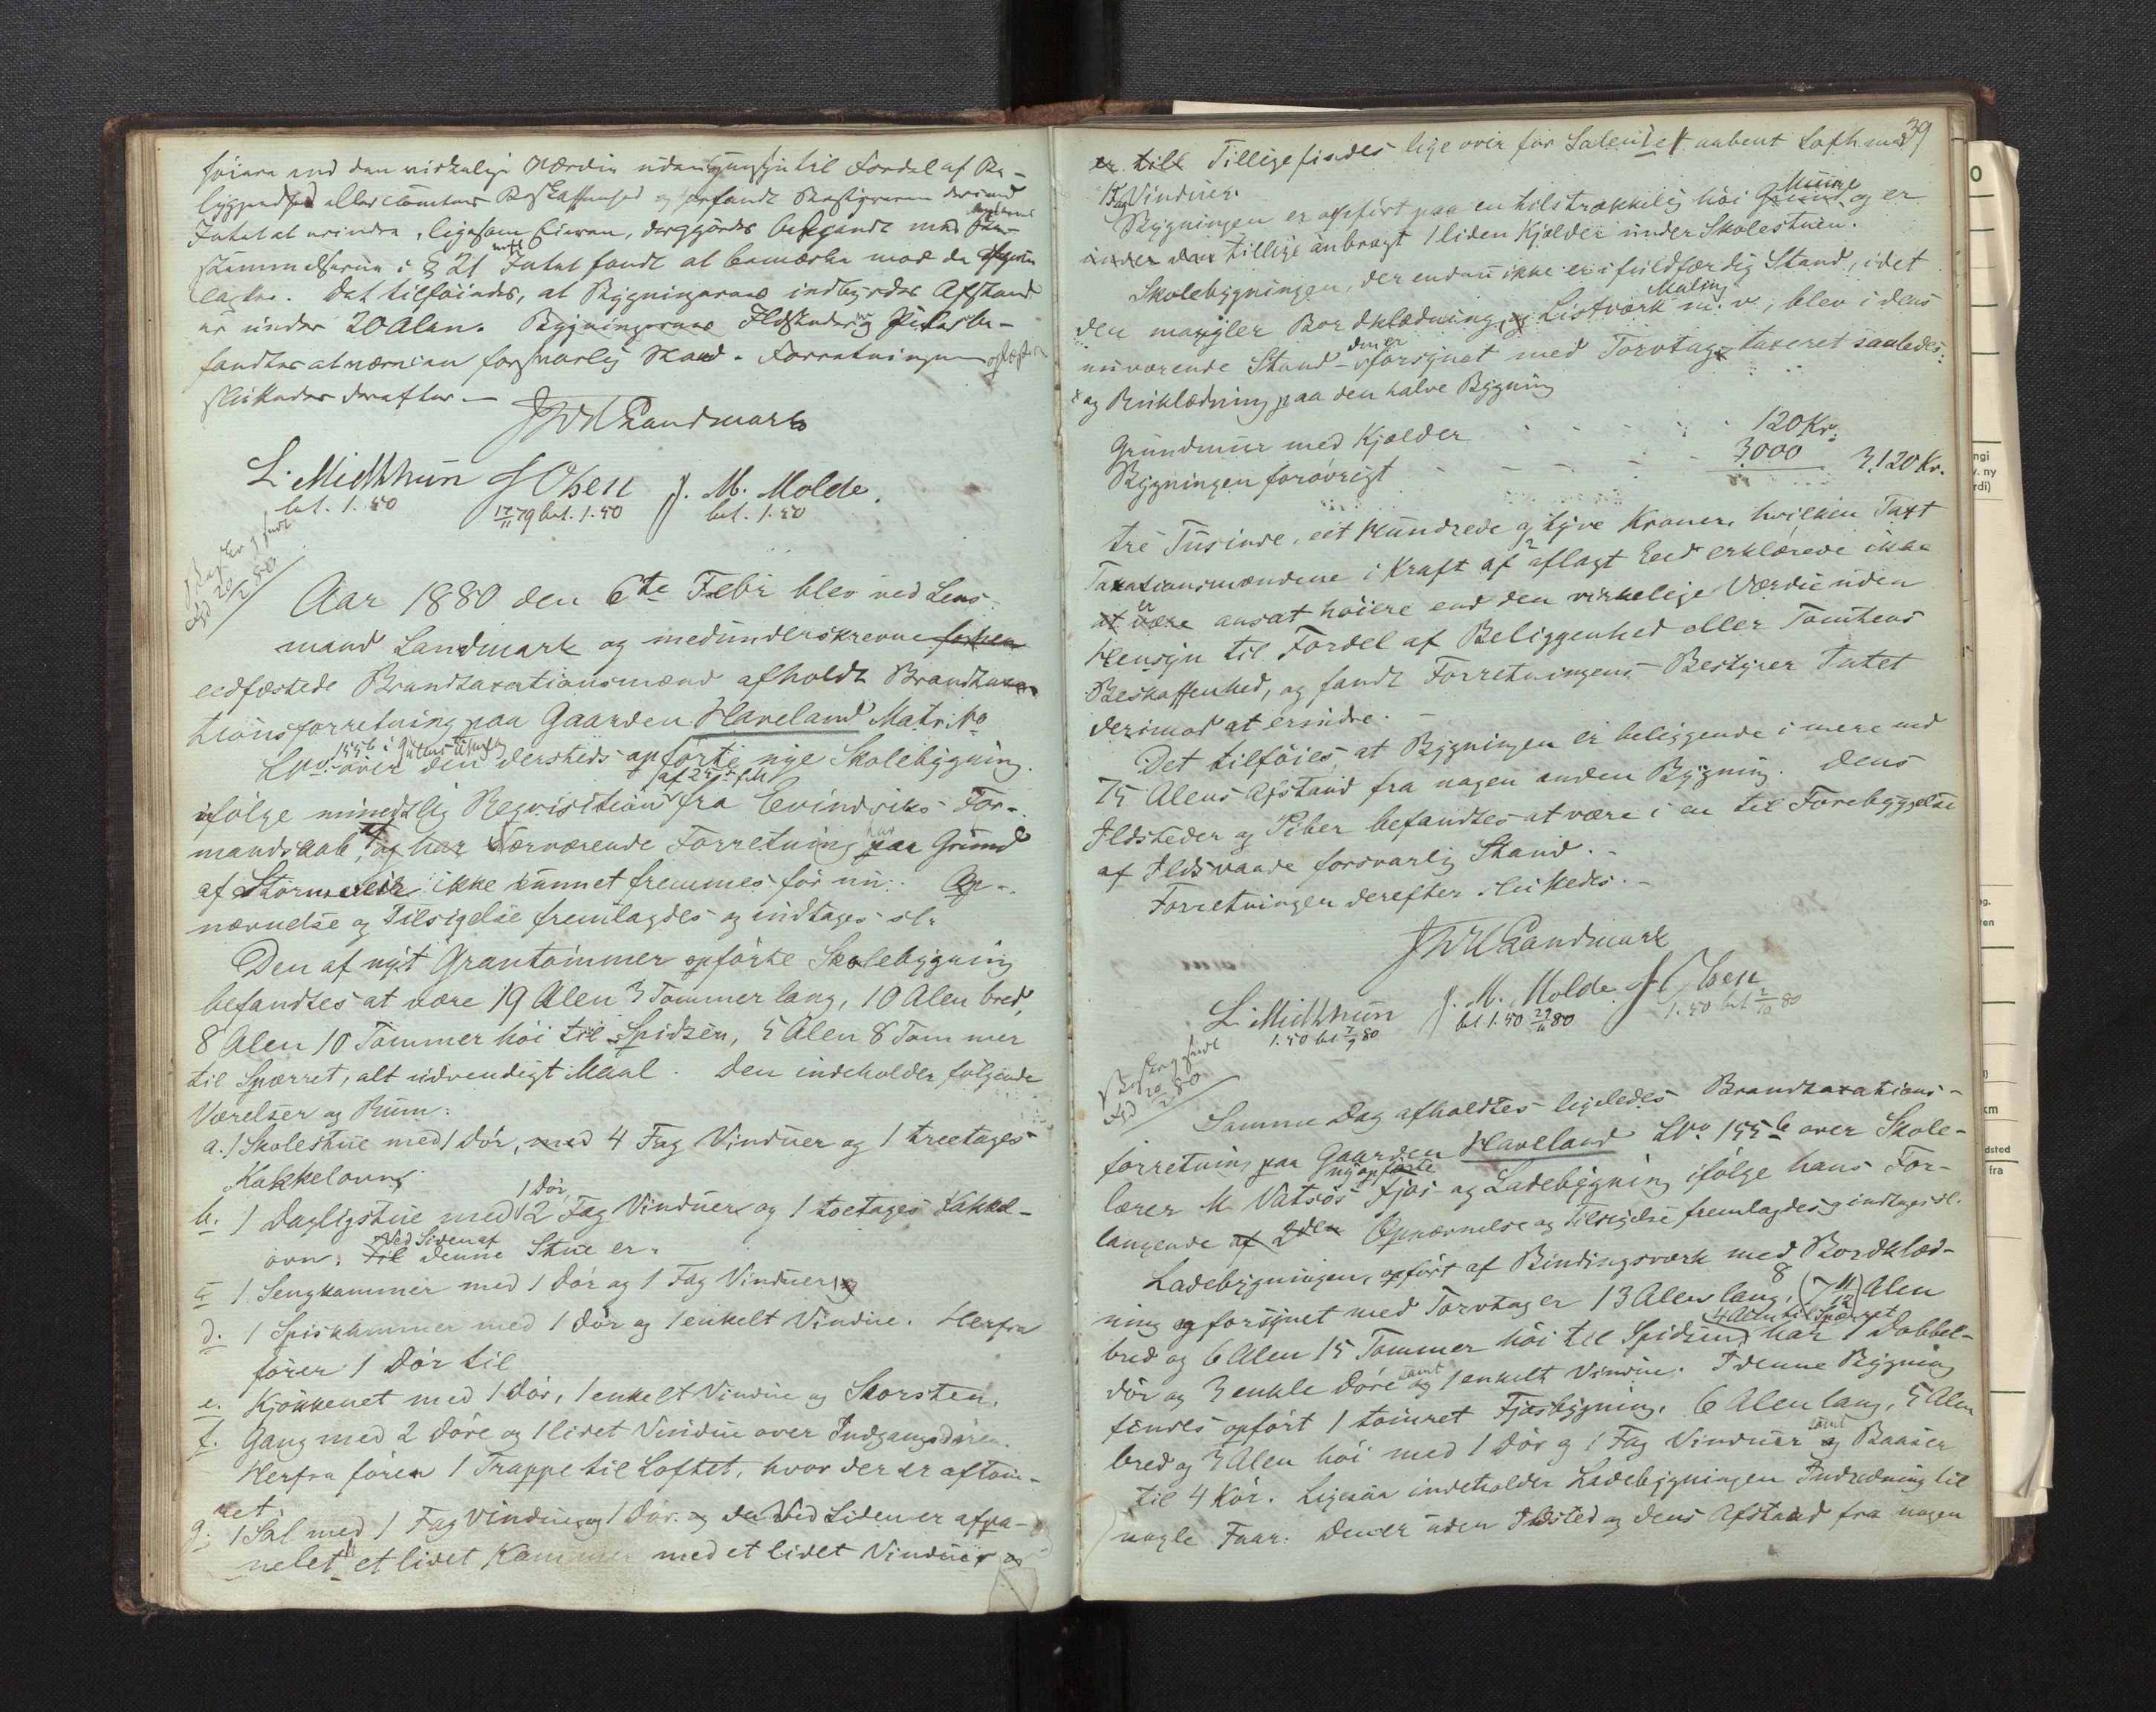 høiere end den virkelige Værdie uden Hensyn til Fordel af Be-
liggenhed eller Tomtens Beskaffenhed og fandt Bestyreren derimod
Intet at erindre, ligesom Eieren, der gjordes bekjendt med
stemmelserne i § 21 Intet fandt at bemærke mod de
Det tilføiedes, at Bygningernes indbyrdes Afstand
er under 20 Alen. Bygningernes Ildsteder og Piber be-
fandtes at være i en forsvarlig Stand. Forretningen oplæst
sluttedes derefter.
Landmark
L. Midthun J Olsen J. M. Molde.
bet. 1.50 17/11 79 bet. 1.50 bet. 1.50
20/2 80
Aar 1880 den 6te Febr blev ved Lens-
mand Landmark og medunderskrevne
eedfæstede Brandtaxationsmænd afholdt Brandtaxa-
tionsforretning paa Gaarden Haveland Matr. No
155b i
LNo over den dersteds opførte nye Skolebygning
ifølge mundtlig Reqvisition fra Evindviks For-
mandskab, og har Nærværende Forretning har paa Grund
af Stormveir ikke kunnet fremmes før nu. Op-
nævnelse og Tilsigelse fremlagdes og indtages sl.
Den af nyt Grantømmer opførte Skolebygning
befandtes at være 19 Alen 3 Tommer lang, 10 Alen bred,
8 Alen 10 Tommer høi til Spidsen, 5 Alen 8 Tommer
til Sparret, alt udvendigt Maal. Den indeholder følgende
Værelser og Rum:
a. 1 Skolestue med 1 Dør, med 4 Fag Vinduer og 1 treetages
Kakkelovn,
1 Dør,
b. 1 Dagligstue med 2 Fag Vinduer og 1 toetages Kakkel-
Ved Siden af
ovn. Til denne Stue er.
c. 1 Sengkammer med 1 Dør og 1 Fag Vinduer og
d. 1 Spiskammer med 1 Dør og 1 enkelt Vindue. Herfra
fører 1 Dør til
e. Kjøkkenet med 1 Dør, 1 enkelt Vindue og Skorsten.
f. Gang med 2 Døre og 1 lidet Vindue over Indgangsdøren.
Herfra fører 1 Trappe til Loftet, hvor der er aftøm-
ret
g. 1 Sal med 1 Fag Vinduer og 1 Dør. og Ved Siden er afpa-
nelet et lidet Kammer med et lidet Vindue og
39
er till Tillige findes lige over for Salen 1 et aabent Loft med
1 Fag Vinduer.
Bygningen er opført paa en tilstrækkelig høi Grund Muur og er
under den tillige anbragt 1 liden Kjælder under Skolestuen.
Skolebygningen, der endnu ikke er i fuldfærdig Stand, idet
Maling
den mangler Bordklædning, og Listværk m. v., blev i dens
den er
nuværende Stand - forsynet med Torvtag x taxeret saaledes:
x og Bordklædning paa den halve Bygning
Grundmuur med Kjælder 120 Kr.
Bygningen forøvrigt 3000 3,120 Kr.
tre Tusinde, eet Hundrede og tyve Kroner, hvilken Taxt
Taxationsmændene i Kraft af aflagt Eed erklærede ikke
at være er ansat høiere end den virkelige Værdie uden
Hensyn til Fordel af Beliggenhed eller Tomtens
Beskaffenhed, og fandt Forretningens Bestyrer Intet
derimod at erindre.
Det tilføies, at Bygningen er beliggende i mere end
75 Alens Afstand fra nogen anden Bygning. Dens
Ildsteder og Piber befandtes at være i en til Forebyggelse
af Ildsvaade forsvarlig Stand.
Forretningen derefter sluttedes.
Landmark
L. Midthun J. M. Molde J Olsen
1.50 bet 7/9 80 bet 1.50 29/11 80 1.50 bet 2/10 80
20/2 80
Samme Dag afholdtes ligeledes Brandtaxations-
forretning paa Gaarden Haveland LNo 155b over Skole-
nyopførte
lærer M. Vatsøs Fjøs- og Ladebygning ifølge hans For-
langende af 2den Opnævnelse og Tilsigelse fremlagdes og indtages sl.
Ladebygningen, opført af Bindingsværk med Bordklæd-
ning og forsynet med Torvtag er 13 Alen lang, 8 (7 11/12) Alen
4 Alen til Sparret
bred og 6 Alen 15 Tommer høi til Spidsen, har 1 Dobbel-
dør og 3 enkle Døre samt og 1 enkelt Vindue. I denne Bygning
findes opført 1 tømret Fjøsbygning, 6 Alen lang, 5 Alen
bred og 3 Alen høi med 1 Dør og 1 Fag Vinduer samt og Baaser
til 4 Kør. Ligesaa indeholder Ladebygningen Indredning til
nogle Faar. Den er uden Ildsted og dens Afstand fra nogen